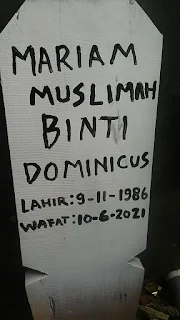 MARIAM
MUSLIMAH
BINTI
DOMINICUS
LAHIR:9-11-1986
WAFAT:10-6-2021